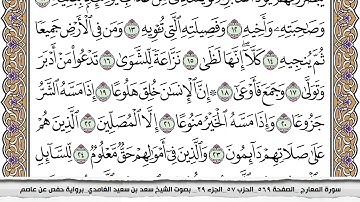 وَصَٰحِبَتِهِۦ وَأَخِيهِ ١٢ وَفَصِيلَتِهِ ٱلَّتِي تُـْٔوِيهِ ١٣ وَمَن فِي ٱلْأَرْضِ جَمِيعًا
ثُمَّ يُنجِيهِ ١٤ كَلَّآ إِنَّهَا لَظَىٰ ١٥ نَزَّاعَةً لِّلشَّوَىٰ ١٦ تَدْعُوا۟ مَنْ أَدْبَرَ
وَتَوَلَّىٰ ١٧ وَجَمَعَ فَأَوْعَىٰٓ ١٨ إِنَّ ٱلْإِنسَٰنَ خُلِقَ هَلُوعًا ١٩ إِذَا مَسَّهُ ٱلشَّرُّ
جَزُوعًا ٢٠ وَإِذَا مَسَّهُ ٱلْخَيْرُ مَنُوعًا ٢١ إِلَّا ٱلْمُصَلِّينَ ٢٢ ٱلَّذِينَ هُمْ
عَلَىٰ صَلَاتِهِمْ دَآئِمُونَ ٢٣ وَٱلَّذِينَ فِيٓ أَمْوَٰلِهِمْ حَقٌّ مَّعْلُومٌ ٢٤ لِّلسَّآئِلِ
سورة المعارج _ الصفحة ٥٦٩ _ الحزب ٥٧ _ الجزء ٢٩ _ بصوت الشيخ سعد بن سعيد الغامدي _ برواية حفص عن عاصم